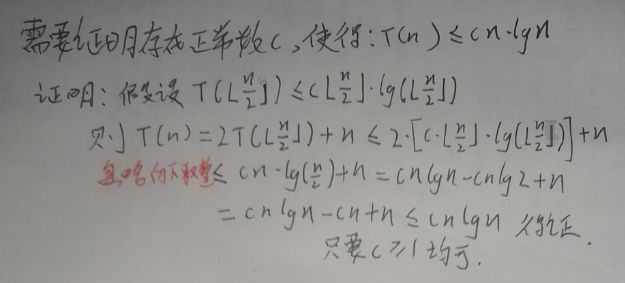 需要证明存在正常数c,使得:T(n)≤cn·lgn
证明:假设 T(⌊n/2⌋)≤c⌊n/2⌋·lg(⌊n/2⌋)
则 T(n)=2T(⌊n/2⌋)+n≤2·[c·⌊n/2⌋·lg(⌊n/2⌋)]+n
忽略向下取整≤cn·lg(n/2)+n=cnlgn-cnlg2+n
=cnlgn-cn+n≤cnlgn 得证.
只要c≥1均可.